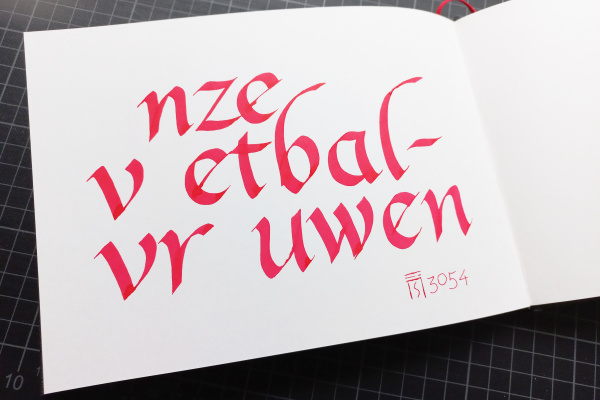 nze
v etbal-
vr uwen
3054
10